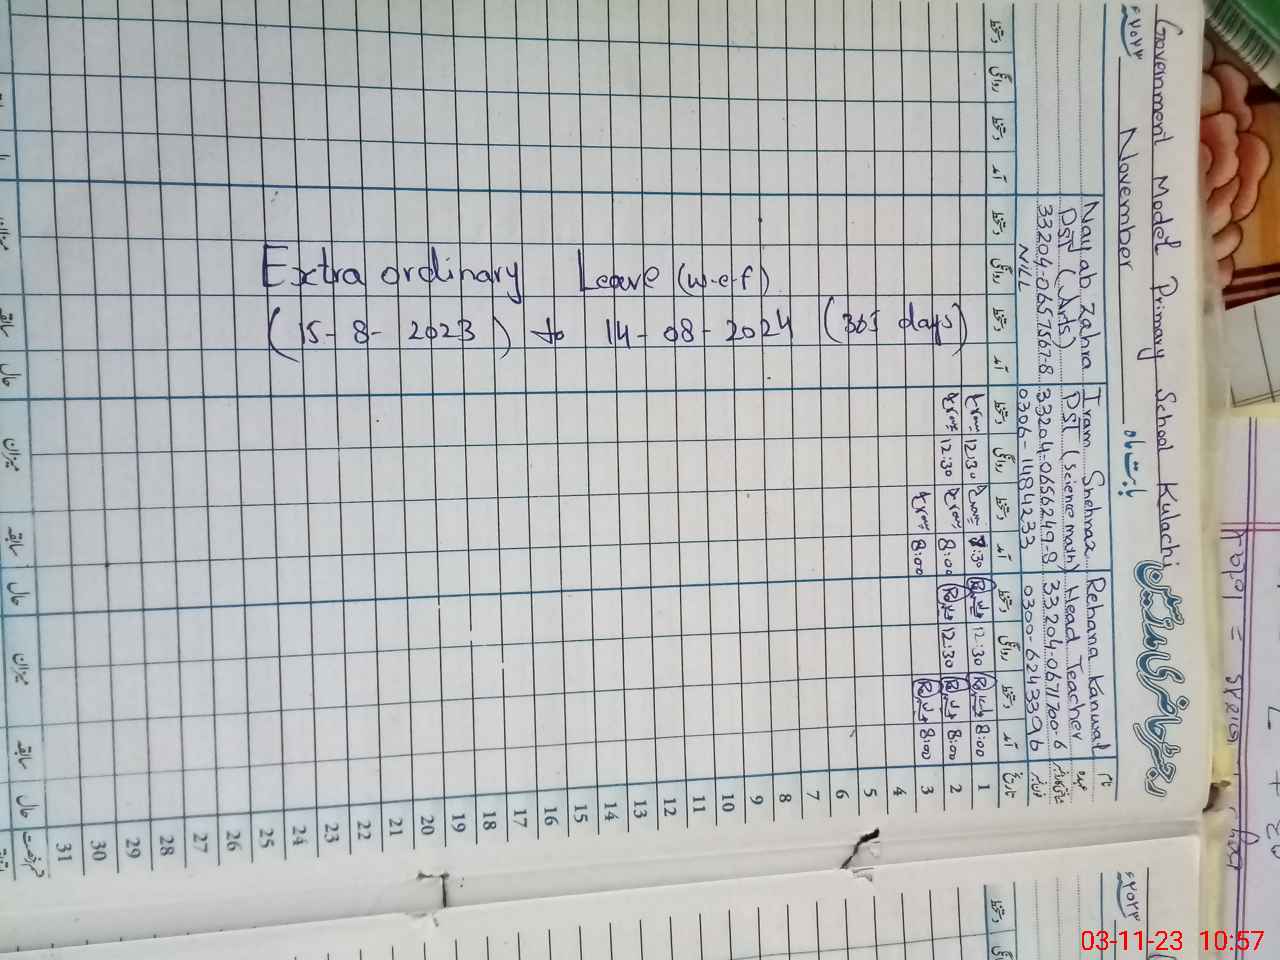 Government Model Primary School Kulachi
رجسٹر حاضری مدرسین
November
بابت ماہ
۲۰۲۳ء
نام
Rehana Kanwal
Iram Shehnaz
Nayab Zahra
عہدہ
Head Teacher
PST (Science math)
PST (Arts)
33204-0671700-6
33204-0656249-8
33204-0657567-8
0300-6243396
0306-1484233
NILL
تاریخ
آمد
دستخط
روانگی
دستخط
آمد
دستخط
روانگی
دستخط
آمد
دستخط
روانگی
دستخط
آمد
دستخط
روانگی
دستخط
1 8:00 12:30 8:30 12:30
2 8:00 12:30 8:00 12:30
3 8:00 8:00
4
5
6
7
8
9
10
11
12
13
14
15
16
17
18
19
20
21
22
23
24
25
26
27
28
29
30
31
Extra ordinary Leave (w-e-f)
(15-8-2023) to 14-08-2024 (365 days)
حال
سابقہ
میزان
حال
سابقہ
میزان
حال
سابقہ
میزان
۲۰۲۳ء
دستخط
03-11-23 10:57